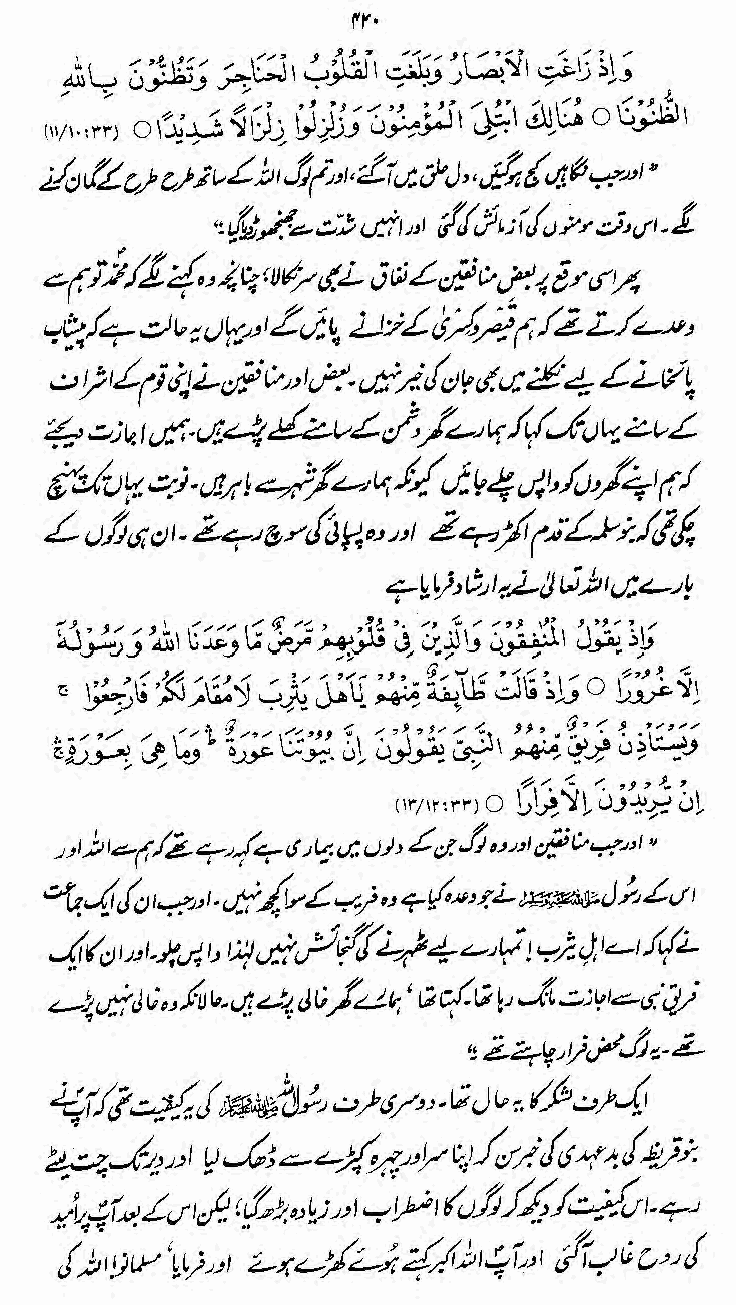 ۴۲۰
وَإِذْ زَاغَتِ الْأَبْصَارُ وَبَلَغَتِ الْقُلُوبُ الْحَنَاجِرَ وَتَظُنُّونَ بِاللهِ
الظُّنُوْنَا ○ هُنَالِكَ ابْتُلِىَ الْمُؤْمِنُوْنَ وَزُلْزِلُوا زِلْزَالًا شَدِيْدًا ○ (۳۳:۱۱/۱۰)
”اور جب نگاہیں کج ہوگئیں، دل حلق میں آگئے، اور تم لوگ اللہ کے ساتھ طرح طرح کے گمان کرنے
لگے۔ اس وقت مومنوں کی آزمائش کی گئی اور انہیں شدّت سے جھنجھوڑ دیا گیا۔“
پھر اسی موقع پر بعض منافقین کے نفاق نے بھی سر نکالا؛ چنانچہ وہ کہنے لگے کہ محمّدؐ تو ہم سے
وعدے کرتے تھے کہ ہم قیصر و کسریٰ کے خزانے پائیں گے اور یہاں یہ حالت ہے کہ پیشاب
پائخانے کے لیے نکلنے میں بھی جان کی خیر نہیں۔ بعض اور منافقین نے اپنی قوم کے اشراف
کے سامنے یہاں تک کہا کہ ہمارے گھر دشمن کے سامنے کھلے پڑے ہیں۔ ہمیں اجازت دیجئے
کہ ہم اپنے گھروں کو واپس چلے جائیں کیونکہ ہمارے گھر شہر سے باہر ہیں۔ نوبت یہاں تک پہنچ
چکی تھی کہ بنو سلمہ کے قدم اکھڑ رہے تھے اور وہ پسپائی کی سوچ رہے تھے۔ ان ہی لوگوں کے
بارے میں اللہ تعالیٰ نے یہ ارشاد فرمایا ہے
وَإِذْ يَقُوْلُ الْمُنٰفِقُوْنَ وَالَّذِيْنَ فِىْ قُلُوْبِهِمْ مَّرَضٌ مَّا وَعَدَنَا اللهُ وَرَسُوْلُهٗ
اِلَّا غُرُوْرًا ○ وَاِذْ قَالَتْ طَّآئِفَةٌ مِّنْهُمْ يٰاَهْلَ يَثْرِبَ لَا مُقَامَ لَكُمْ فَارْجِعُوْا ج
وَيَسْتَاْذِنُ فَرِيْقٌ مِّنْهُمُ النَّبِىَّ يَقُوْلُوْنَ اِنَّ بُيُوْتَنَا عَوْرَةٌ ط وَمَا هِىَ بِعَوْرَةٍ ج
اِنْ يُّرِيْدُوْنَ اِلَّا فِرَارًا ○ (۳۳:۱۳/۱۲)
”اور جب منافقین اور وہ لوگ جن کے دلوں میں بیماری ہے کہہ رہے تھے کہ ہم سے اللہ اور
اس کے رسول ﷺ نے جو وعدہ کیا ہے وہ فریب کے سوا کچھ نہیں۔ اور جب ان کی ایک جماعت
نے کہا کہ اے اہلِ یثرب! تمہارے لیے ٹھہرنے کی گنجائش نہیں لہٰذا واپس چلو۔ اور ان کا ایک
فریق نبی سے اجازت مانگ رہا تھا۔ کہتا تھا‘ ہمارے گھر خالی پڑے ہیں۔ حالانکہ وہ خالی نہیں پڑے
تھے۔ یہ لوگ محض فرار چاہتے تھے۔“
ایک طرف لشکر کا یہ حال تھا۔ دوسری طرف رسول اللہ ﷺ کی یہ کیفیت تھی کہ آپؐ نے
بنو قریظہ کی بدعہدی کی خبر سن کر اپنا سر اور چہرہ کپڑے سے ڈھک لیا اور دیر تک چت لیٹے
رہے۔ اس کیفیت کو دیکھ کر لوگوں کا اضطراب اور زیادہ بڑھ گیا؛ لیکن اس کے بعد آپؐ پر اُمید
کی روح غالب آگئی اور آپؐ اللہ اکبر کہتے ہُوئے کھڑے ہوئے اور فرمایا‘ مسلمانو! اللہ کی